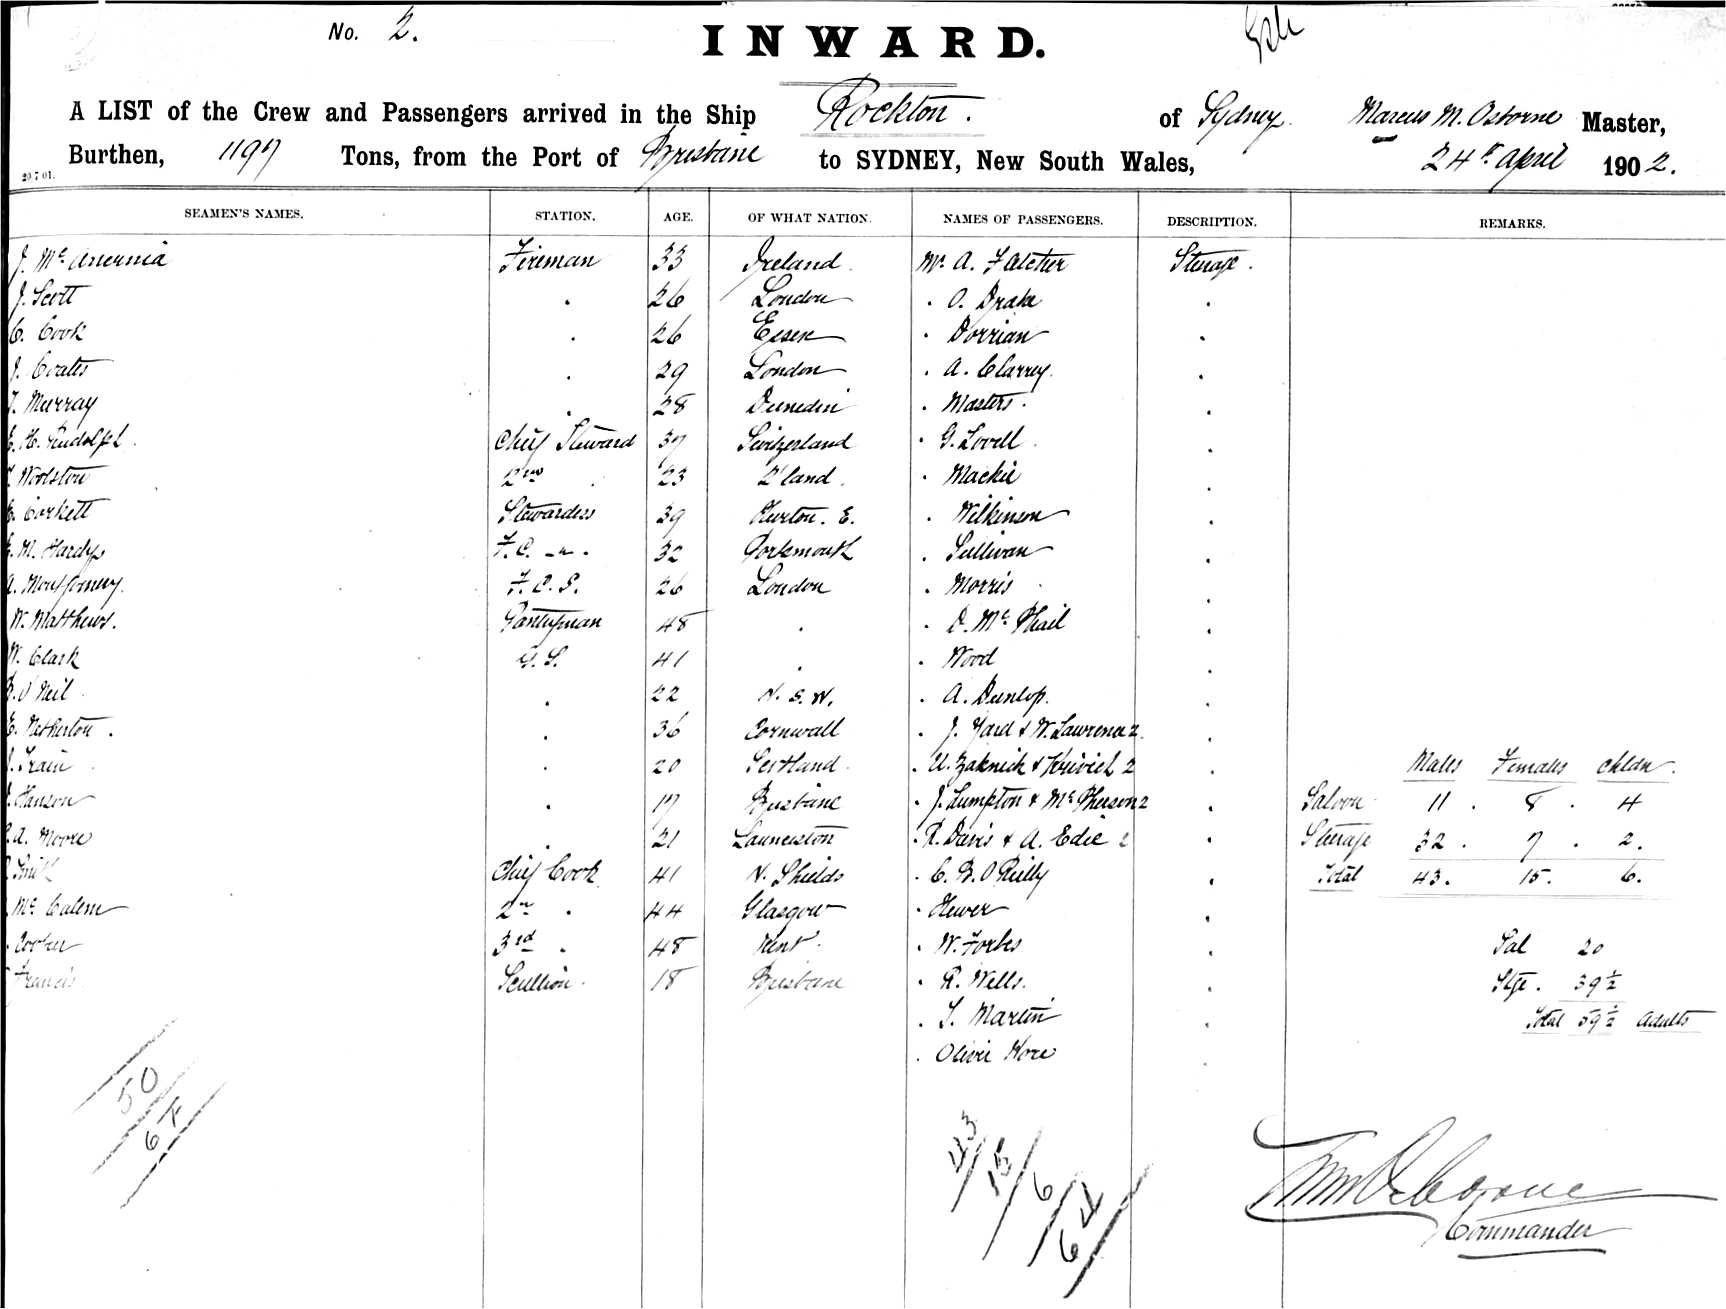 No. 2.
INWARD.
A LIST of the Crew and Passengers arrived in the Ship Rockton. of Sydney. Marcus M. Osborne Master,
Burthen, 1197 Tons, from the Port of Brisbane to SYDNEY, New South Wales, 24th April 1902.
29.7.01.
SEAMEN'S NAMES. STATION. AGE. OF WHAT NATION. NAMES OF PASSENGERS. DESCRIPTION. REMARKS.
J. Mc Anernia Fireman 33 Ireland. Mr. A. Fletcher Steerage.
J. Scott . 26 London . O. Drake .
C. Cook . 26 Essex . Dorrian .
J. Coates . 29 London . A. Clarrey. .
T. Murray . 28 Dunedin . Masters. .
E. H. Rudolph. Chief Steward 37 Switzerland . G. Lovell .
Woolston 2nd . 23 Q'land. . Mackie .
Corkett Stewardess 39 Hurton. E. . Wilkinson .
E. M. Hardy F.C. -"- . 32 Portsmouth . Sullivan .
A. Montgomery. F.C.S. 26 London . Morris .
W. Matthews. Pantryman 48 . . D. Mc Phail .
W. Clark G.S. 41 . . Wood .
O'Neil . 22 N.S.W. . A. Dunlop. .
E. Netherton. . 36 Cornwall . J. Yard & W. Lawrence 2. .
J. Train . 20 Scotland. . U. Zaknick & Krivich 2 .
Hanson . 17 Brisbane . J. Lumpton & Mc Pherson 2 .
A. Moore . 21 Launceston . R. Davis & A. Edie 2 .
Smith Chief Cook 41 N. Shields . C. B. O'Reilly .
Mc Calem 2nd . 44 Glasgow . Hewer .
Cooker 3rd . 48 Kent. . W. Forbes .
Francis Scullion. 18 Brisbane . R. Wells. .
. S. Martin .
. Olivie Hore .
Males Females Chldn.
Saloon 11. 8. 4
Steerage 32. 7. 2.
Total 43. 15. 6.
Sal 20
Stge. 39½
Total 59½ Adults
50
64
43
15
6
64
M M Osborne
Commander